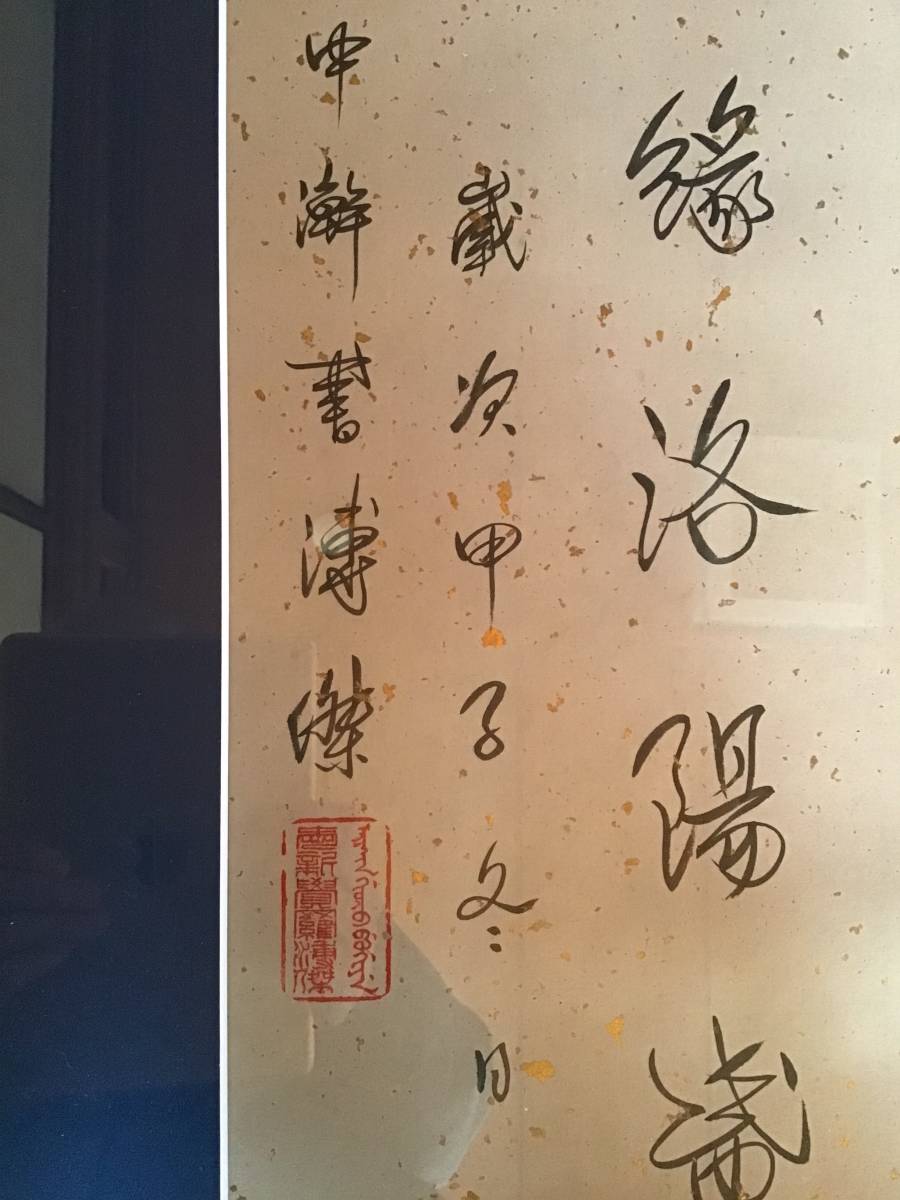 緣洛陽歲
歲次甲子冬日
中澣書溥傑
愛新覺羅溥傑